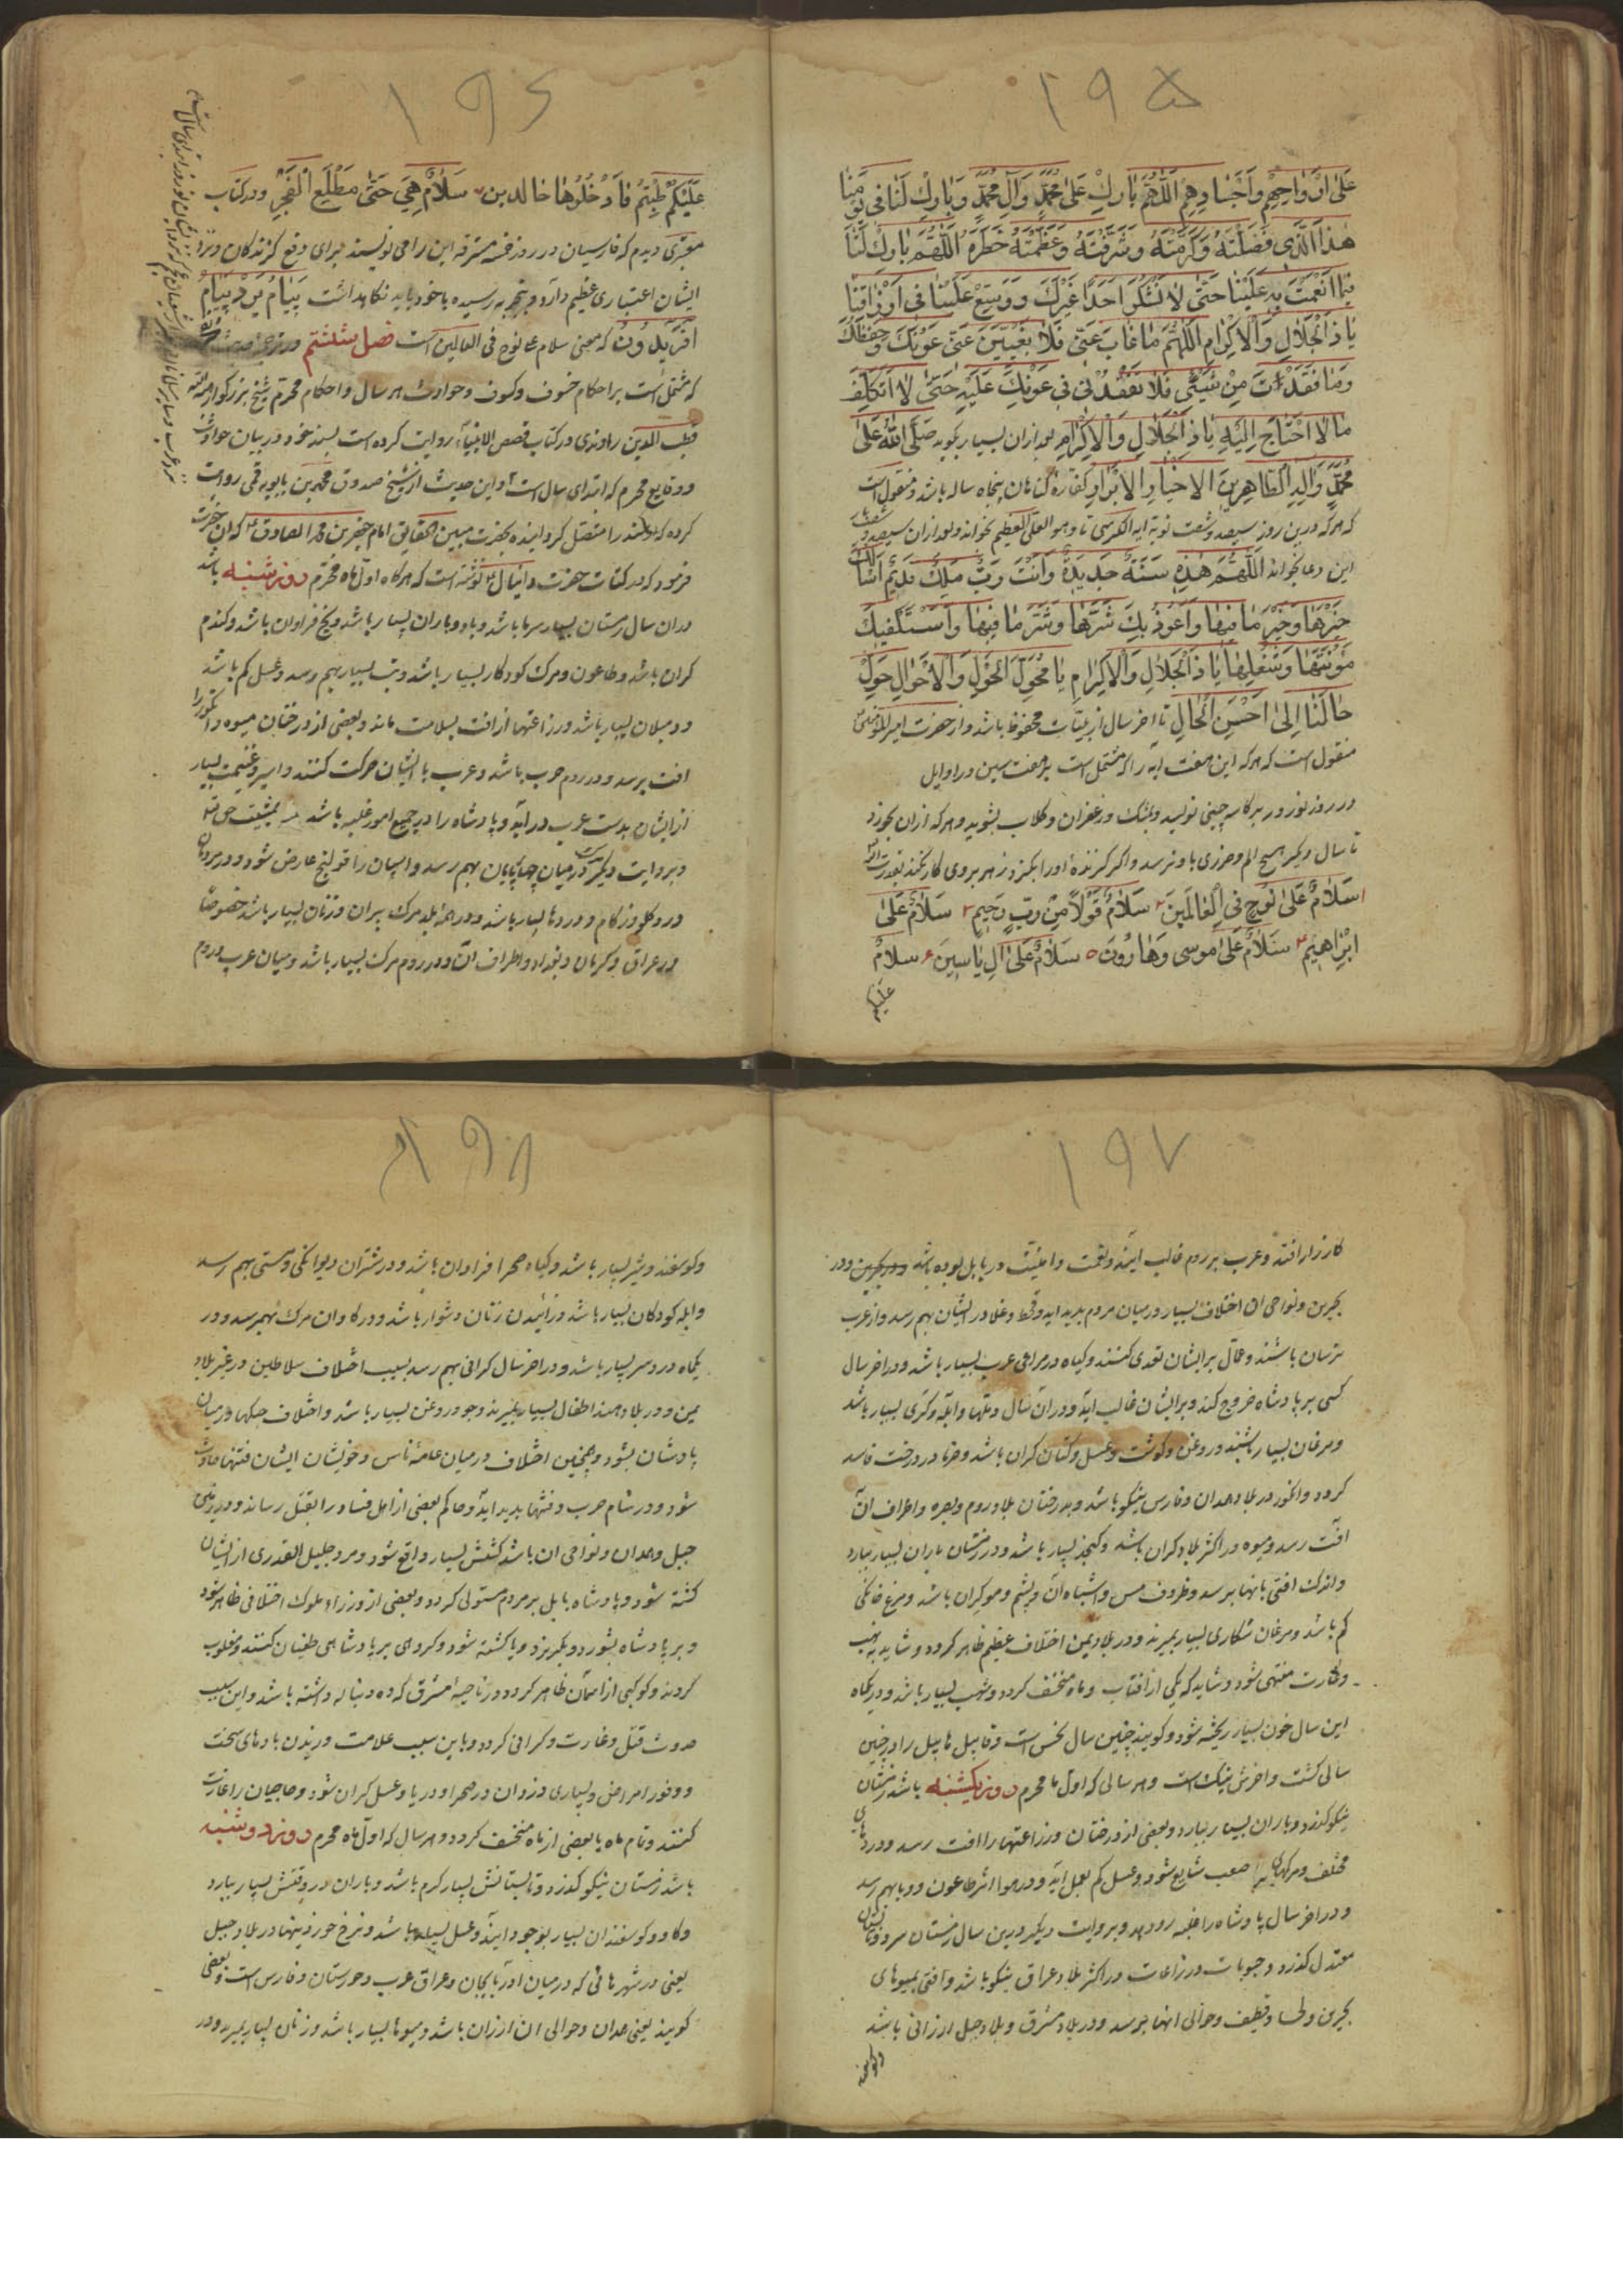 ۱۹۵
عَلیٰ اَرْوَاحِهِمْ وَاَجْسَادِهِمْ اَللّٰهُمَّ بَارِكْ عَلیٰ مُحَمَّدٍ وَآلِ مُحَمَّدٍ وَبَارِكْ لَنَا فی یَوْمِنَا
هٰذَا الَّذی فَضَّلْتَهُ وَكَرَّمْتَهُ وَشَرَّفْتَهُ وَعَظَّمْتَ خَطَرَهُ اَللّٰهُمَّ بَارِكْ لَنَا
فیمَا اَنْعَمْتَ بِهِ عَلَیْنَا حَتّیٰ لَا نَشْكُرَ اَحَدًا غَیْرَكَ وَوَسِّعْ عَلَیْنَا فی اَرْزَاقِنَا
یَا ذَا الْجَلَالِ وَالْاِكْرَامِ اَللّٰهُمَّ مَا غَابَ عَنّی فَلَا یَغیبَنَّ عَنّی عَوْنُكَ وَحِفْظُكَ
وَمَا فَقَدْتُ مِنْ شَیْئٍ فَلَا تُفْقِدْنی فی عَوْنِكَ عَلَیْهِ حَتّیٰ لَا اَتَكَلَّفَ
مَا لَا اَحْتَاجُ اِلَیْهِ یَا ذَا الْجَلَالِ وَالْاِكْرَامِ بعد ازان بسیار بكوید صَلَّی اللّٰهُ عَلیٰ
مُحَمَّدٍ وَآلِهِ الطَّاهِرینَ الْاَخْیَارِ الْاَبْرَارِ كفاره كناهان پنجاه ساله باشد و منقول است
كه هركه درین روز سیصد و شصت نوبه آیه الكرسی تا و هو العلی العظیم بخواند و بعد ازان سیصد و شصت بار
این دعا بخواند اَللّٰهُمَّ هٰذِهِ سَنَةٌ جَدیدَةٌ وَاَنْتَ رَبٌّ مَلِكٌ قَدیمٌ اَسْاَلُكَ
خَیْرَهَا وَخَیْرَ مَا فیهَا وَاَعُوذُ بِكَ شَرَّهَا وَشَرَّ مَا فیهَا وَاَسْتَكْفیكَ
مَؤُنَتَهَا وَشُغْلَهَا یَا ذَا الْجَلَالِ وَالْاِكْرَامِ یَا مُحَوِّلَ الْحَوْلِ وَالْاَحْوَالِ حَوِّلْ
حَالَنَا اِلیٰ اَحْسَنِ الْحَالِ تا آخر سال از بلیّات محفوظ باشد و از حضرت امیر المؤمنین
منقول است كه هركه این هفت آیه را كه مشتمل است بر هفت سین در اوایل
در روز نوروز بر كاسه چینی نویسد و بمشك و زعفران و كلاب بشوید و هركه ازان بخورد
تا سال دیكر هیچ الم و مرضی باو نرسد و اكر كزنده او را بكزد زهر بروی كار نكند بقدرت الله
۱ سَلَامٌ عَلیٰ نُوحٍ فِی الْعَالَمینَ ۲ سَلَامٌ قَوْلًا مِنْ رَبٍّ رَحیمٍ ۳ سَلَامٌ عَلیٰ
اِبْرَاهیمَ ۴ سَلَامٌ عَلیٰ مُوسیٰ وَهَارُونَ ۵ سَلَامٌ عَلیٰ آلِ یَاسینَ ۶ سَلَامٌ
علیكم
۱۹۶
عَلَیْكُمْ طِبْتُمْ فَادْخُلُوهَا خَالِدینَ ۷ سَلَامٌ هِیَ حَتّیٰ مَطْلَعِ الْفَجْرِ و در كتاب
معتبری دیدم كه فارسیان در روز خمسه مسترقه این را می نویسند برای دفع كزندكان و نزد
ایشان اعتباری عظیم دارد و بتجربه رسیده باخود باید نكاهداشت
افریدون كه معنی سلام علی نوح فی العالمین است فصل ششم در ترجمه حدیث
كه مشتمل است بر احكام خسوف و كسوف و حوادث هر سال و احكام محرم شیخ بزركوار
قطب الدین راوندی در كتاب قصص الانبیاء روایت كرده است بسند خود در بیان حوادث
و وقایع محرم كه ابتدای سال است و این حدیث از شیخ صدوق محمد بن بابویه قمی روایت
كرده كه سند را متصل كردانیده بحضرت مبین الحقایق امام جعفر بن محمد الصادق ع كه آن حضرت
فرمود كه در كتاب حضرت دانیال ع نوشته است كه هركاه اول ماه محرم روز شنبه باشد
دران سال زمستان بسیار سرما باشد و باد و باران بسیار باشد و یخ فراوان باشد و كندم
كران باشد و طاعون و مرك كودكان بسیار باشد و تب بسیار بهم رسد و عسل كم باشد
و دمبلان بسیار باشد و زراعتها از آفت بسلامت ماند و بعضی از درختان میوه و انكور را
آفت برسد و در روم حرب باشد و عرب با ایشان حركت كنند و اسیر و غنیمت بسیار
از ایشان بدست عرب درآید و پادشاه را در جمیع امور غلبه باشد بمشیت حق تع
و بروایت دیكر در میان چهارپایان مرك بهم رسد و اسپان را قولنج عارض شود و در مردمان
درد كلو و زكام و دردها بسیار باشد و در همه بلاد مرك پیران و زنان بسیار باشد خصوصًا
در عراق و كرمان و بغداد و اطراف آن و در روم مرك بسیار باشد و میان عرب و روم
۱۹۷
كارزار افتد و عرب بر روم غالب آیند و نعمت و امنیّت در بابل بوده باشد و در
بحرین و نواحی آن اختلاف بسیار در میان مردم پدید آید و قحط و غلا در ایشان بهم رسد و از عرب
ترسان باشند و عمّال بر ایشان تعدی كنند و كیاه در مراعی عرب بسیار باشد و در آخر سال
كسی بر پادشاه خروج كند و بر ایشان غالب آید و دران سال دملها و آبله و كری بسیار باشد
و مرغان بسیار باشند و روغن و كوشت و عسل و كتان كران باشد و خرما در درخت فاسد
كردد و انكور در بلاد همدان و فارس نیكو باشد و بدرختان بلاد روم و بصره و اطراف آن
آفت رسد و میوه در اكثر بلاد كران باشد و كنجد بسیار باشد و در زمستان باران بسیار ببارد
و اندك آفتی بانها برسد و ظروف مس و اشباه آن و پشم و مو كران باشد و مرغ خانكی
كم باشد و مرغان شكاری بسیار بمیرند و در بلاد یمن اختلاف عظیم ظاهر كردد و شاید به نهب
و غارت منتهی شود و شاید كه یكی از آفتاب و ماه منخسف كردد و شهب بسیار باشد و در یكماه
این سال خون بسیار ریخته شود و كویند چنین سال نحس است و قابیل هابیل را در چنین
سالی كشت و آخرش نیك است و هر سالی كه اول ماه محرم روز یكشنبه باشد زمستان
نیكو كذرد و باران بسیار ببارد و بعضی از درختان و زراعتها را آفت رسد و دردهای
مختلف و مركهای صعب شایع شود و عسل كم بعمل آید و در هوا اثر طاعون و وبا بهم رسد
و در آخر سال پادشاه را غلبه رو دهد و بروایت دیكر درین سال زمستان سرد و تابستان
معتدل كذرد و حبوبات و زراعات در اكثر بلاد عراق نیكو باشد و آفتی بمیوهای
بحرین و لحسا و قطیف و حوالی آنها برسد و در بلاد مشرق و بلاد جبل ارزانی باشد
و كوسفند
۱۹۸
و كوسفند و شیر بسیار باشد و كیاه صحرا فراوان باشد و در شتران دیوانكی و مستی بهم رسد
و آبله كودكان بسیار باشد و زائیدن زنان دشوار باشد و در كاوان مرك بهم رسد و در
یكماه درد سر بسیار باشد و در آخر سال كرانی بهم رسد بسبب اختلاف سلاطین در غیر بلاد
یمن و در بلاد هند اطفال بسیار بمیرند و جو و روغن بسیار باشد و اختلاف جنكها در میان
پادشاهان بشود و همچنین اختلاف در میان عامه ناس و خویشان ایشان فتنها حادث
شود و در شام حرب و فتنها پدید آید و حاكم بعضی از اهل فساد را بقتل رساند و در زمین
جبل و همدان و نواحی آن باشد كشش بسیار واقع شود و مرد جلیل القدری از ایشان
كشته شود و پادشاه بابل بر مردم مستولی كردد و بعضی از وزراء ملوك اختلافی ظاهر شود
و بر پادشاه بشورد و بكریزد و یا كشته شود و كروهی بر پادشاهی طغیان كنند و مغلوب
كردند و كوكبی از آسمان ظاهر كردد در ناحیه مشرق كه دنباله داشته باشد و این سبب
حدوث قتل و غارت و كرانی كردد و باین سبب علامت وزیدن بادهای سخت
و وفور امراض و بسیاری دزدان در صحرا و دریا و عسل كران شود و حاجیان را غارت
كنند و تمام ماه یا بعضی از ماه منخسف كردد و هر سال كه اول ماه محرم روز دوشنبه
باشد زمستان نیكو كذرد و تابستانش بسیار كرم باشد و باران در وقتش بسیار ببارد
و كاو و كوسفندان بسیار بوجود آیند و عسل بسیار باشد و نرخ خوردنیها در بلاد جبل
یعنی در شهرهائی كه در میان آذربایجان و عراق عرب و خوزستان و فارس است و بعضی
كویند یعنی همدان و حوالی آن ارزان باشد و میوها بسیار باشد و زنان بسیار بمیرند و در